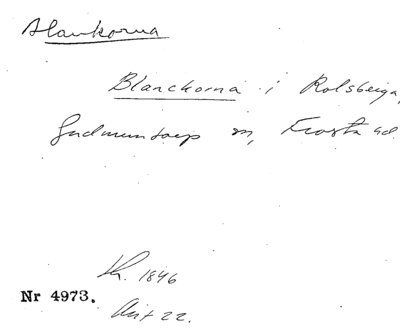 Blankorna
Blanckorna i Rolsberga,
Gudmuntorp sn, Frosta hd.
Kr. 1846
Nr 4973.
Avt 22.